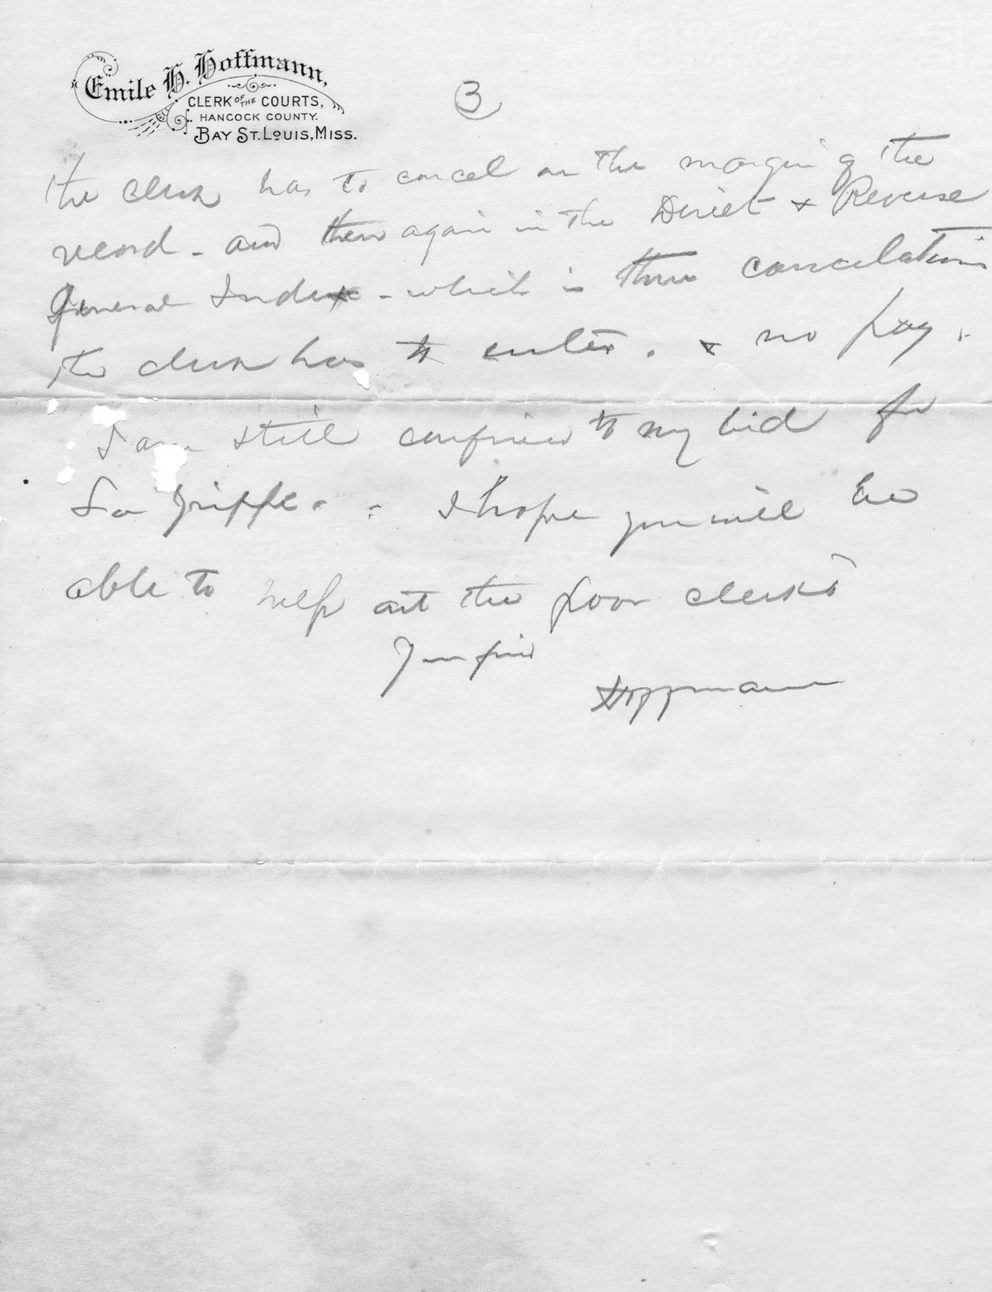 Emile H. Hoffmann,
CLERK OF THE COURTS,
HANCOCK COUNTY.
BAY ST. LOUIS, MISS.
3
the clerk has to cancel on the margin of the
record - and then again in the Direct & Reverse
General Index - which is three cancelations
the clerk has to enter. & no pay.
I am still confined to my bed for
La Grippe. I hope you will be
able to help out the poor clerks
Your frind
Hoffmann